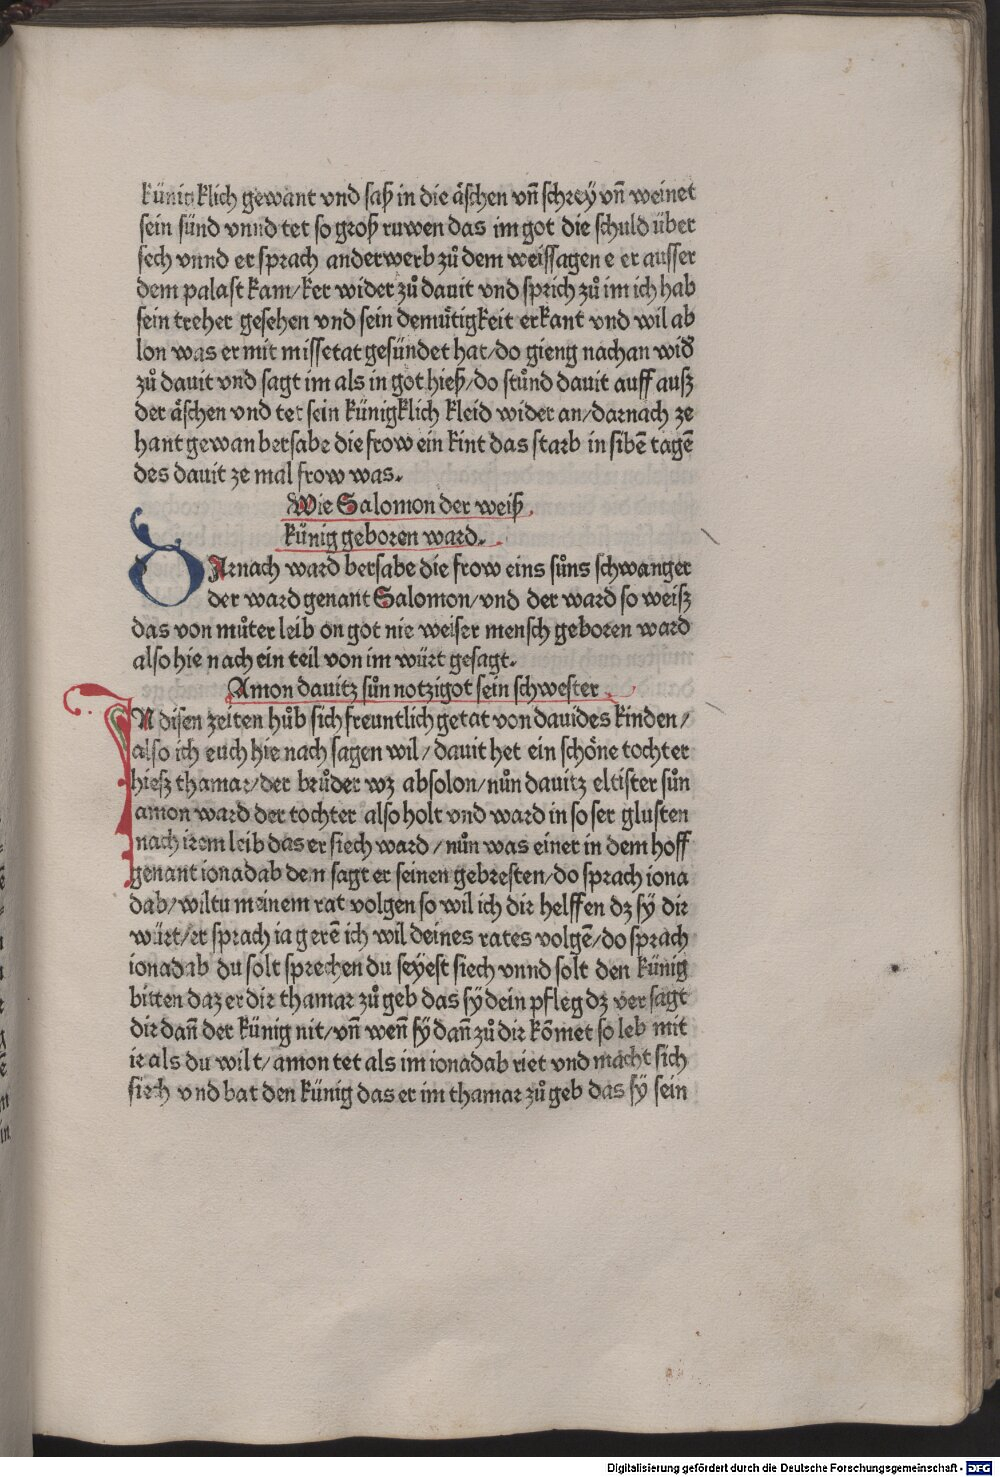 künigklich gewant vnd saß in die äschen vn̄ schreÿ vn̄ weinet
sein sünd vnnd tet so groß ruwen das im got die schuld über
sech vnnd er sprach anderwerb zů dem weissagen e er ausser
dem palast kam/ker wider zů dauit vnd sprich zů im ich hab
sein treher gesehen vnd sein demütigkeit erkant vnd wil ab
lon was er mit missetat gesündet hat/do gieng nachan wid̄
zů dauit vnd sagt im als in got hieß/do stůnd dauit auff ausz
der äschen vnd tet sein künigklich kleid wider an/darnach ze
hant gewan bersabe die frow ein kint das starb in sibē tagē
des dauit ze mal frow was.
Wie Salomon der weiß
künig geboren ward.
DArnach ward bersabe die frow eins sůns schwanger
der ward genant Salomon/vnd der ward so weisz
das von můter leib on got nie weiser mensch geboren ward
also hie nach ein teil von im würt gesagt.
Amon dauitz sůn notzigot sein schwester
IN disen zeiten hůb sich freuntlich getat von dauides kinden/
also ich euch hie nach sagen wil/dauit het ein schöne tochter
hiesz thamar/der brůder wz absolon/nůn dauitz eltister sůn
amon ward der tochter also holt vnd ward in so ser glusten
nach irem leib das er siech ward/nůn was einer in dem hoff
genant ionadab den sagt er seinen gebresten/do sprach iona
dab/wiltu meinem rat volgen so wil ich dir helffen dz sÿ dir
würt/er sprach ia gerē ich wil deines rates volgē/do sprach
ionadab du solt sprechen du seyest siech vnnd solt den künig
bitten daz er dir thamar zů geb das sÿ dein pfleg dz versagt
dir dan̄ der künig nit/vn̄ wen̄ sÿ dan̄ zů dir kōmet so leb mit
ir als du wilt/amon tet als im ionadab riet vnd macht sich
siech vnd bat den künig das er im thamar zů geb das sÿ sein
Digitalisierung gefördert durch die Deutsche Forschungsgemeinschaft - DFG